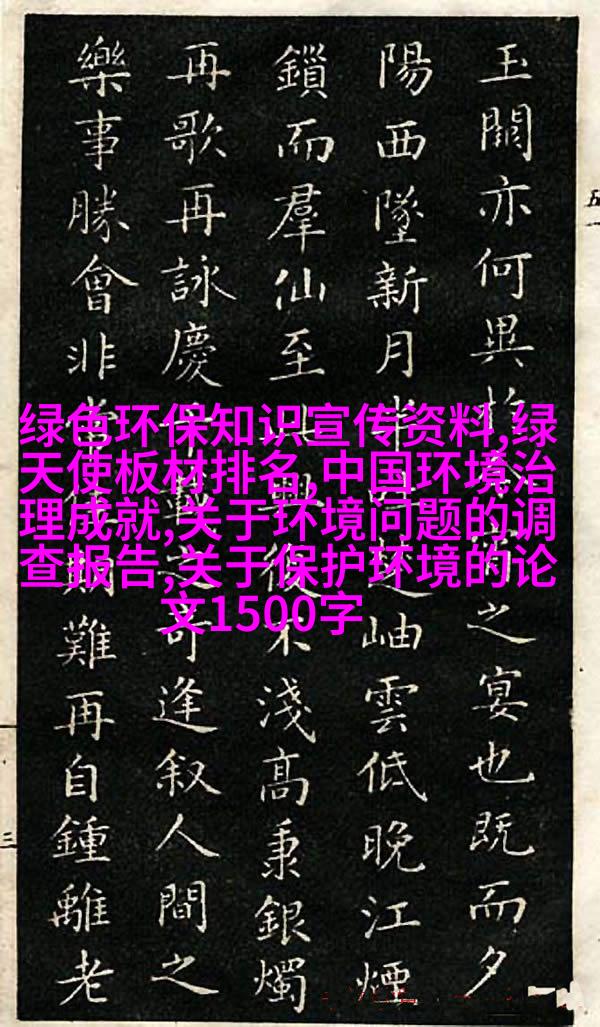 玉闕亦何異之宴也既而夕
陽西墜新月半楚岫雲低晚江煙
鎖而羣仙至興復不淺高秉銀燭
再歌再詠慶千載可逢叙人間之
樂事勝會非常佳期難再自鍾離老
五一
三
绿色环保知识宣传资料,绿
天使板材排名,中国环境治
理成就,关于环境问题的调
查报告,关于保护环境的论
文1500字